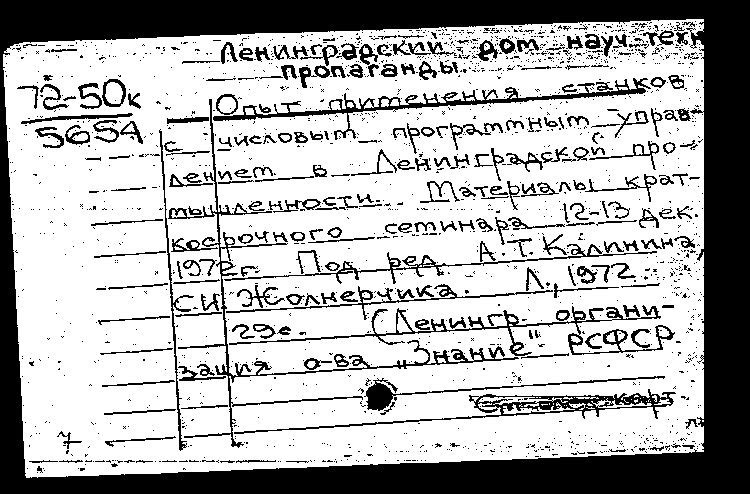 Ленинградский дом науч.-техн
пропаганды.
72-50к
5654
Опыт применения станков
с числовым программным управ-
лением в Ленинградской про-
мышленности. Материалы крат-
косрочного семинара 12-13 дек.
1972г. Под ред. А.Т. Калинина,
С.И. Жолнерчика. Л., 1972.
29с. (Ленингр. органи-
зация о-ва „Знание" РСФСР.
7